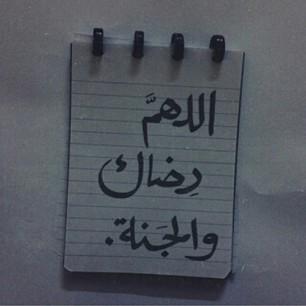 اللهمَّ
رِضاك
والجَنة.